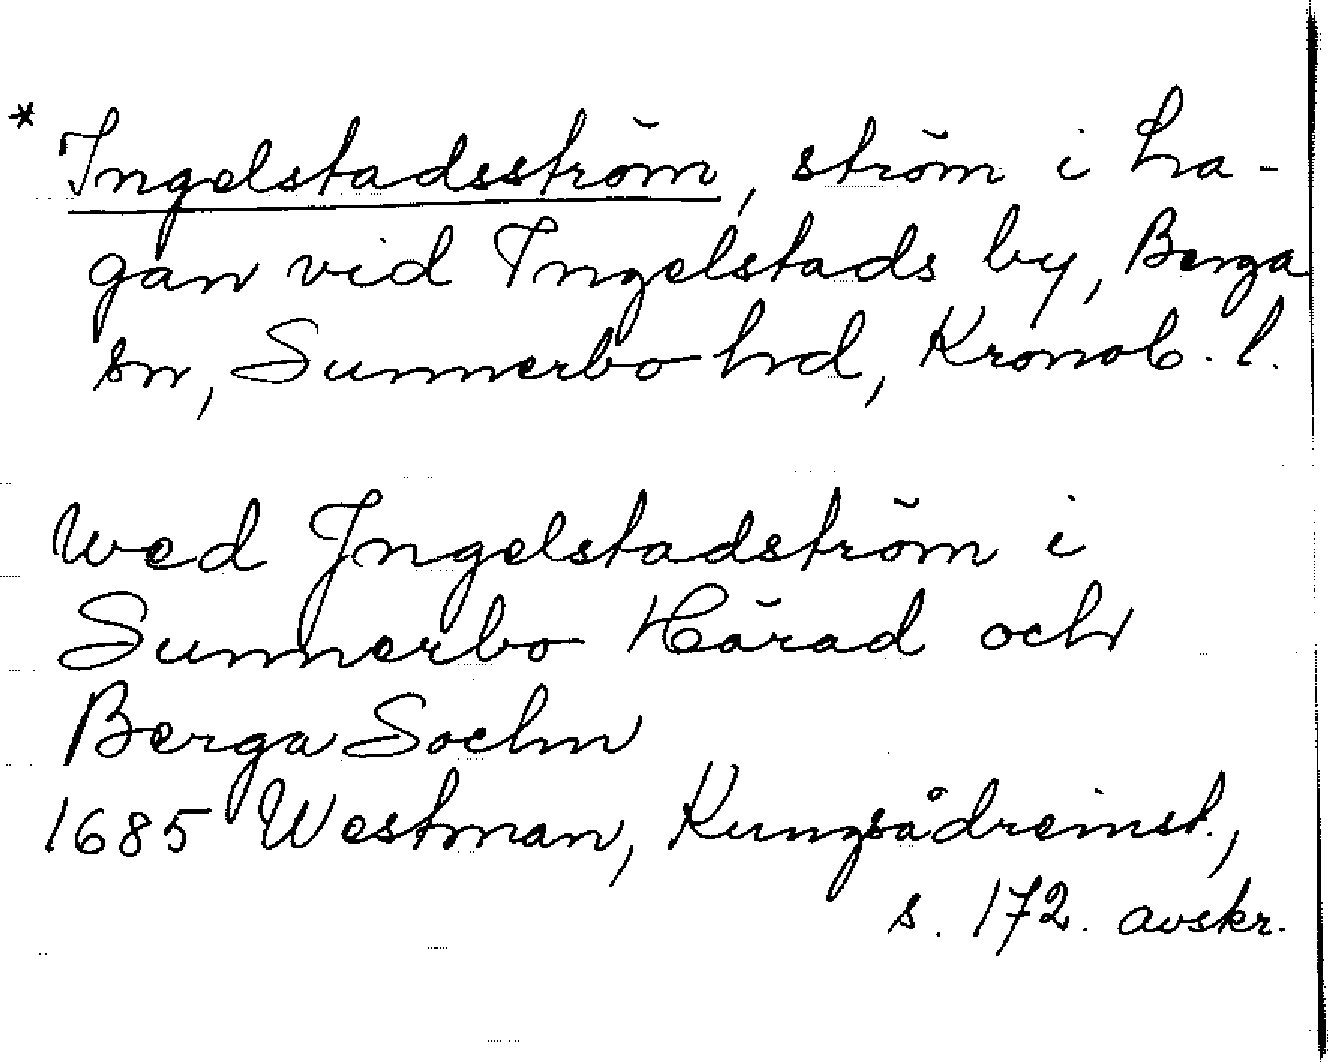 * Ingelstadsström, ström i La-
gan vid Ingelstads by, Berga
sn, Sunnerbo hd, Kronob. l.
Wed Ingelstadström i
Sunnerbo Härad och
Berga Sochn
1685 Westman, Kungsådreinst.,
s. 172. avskr.